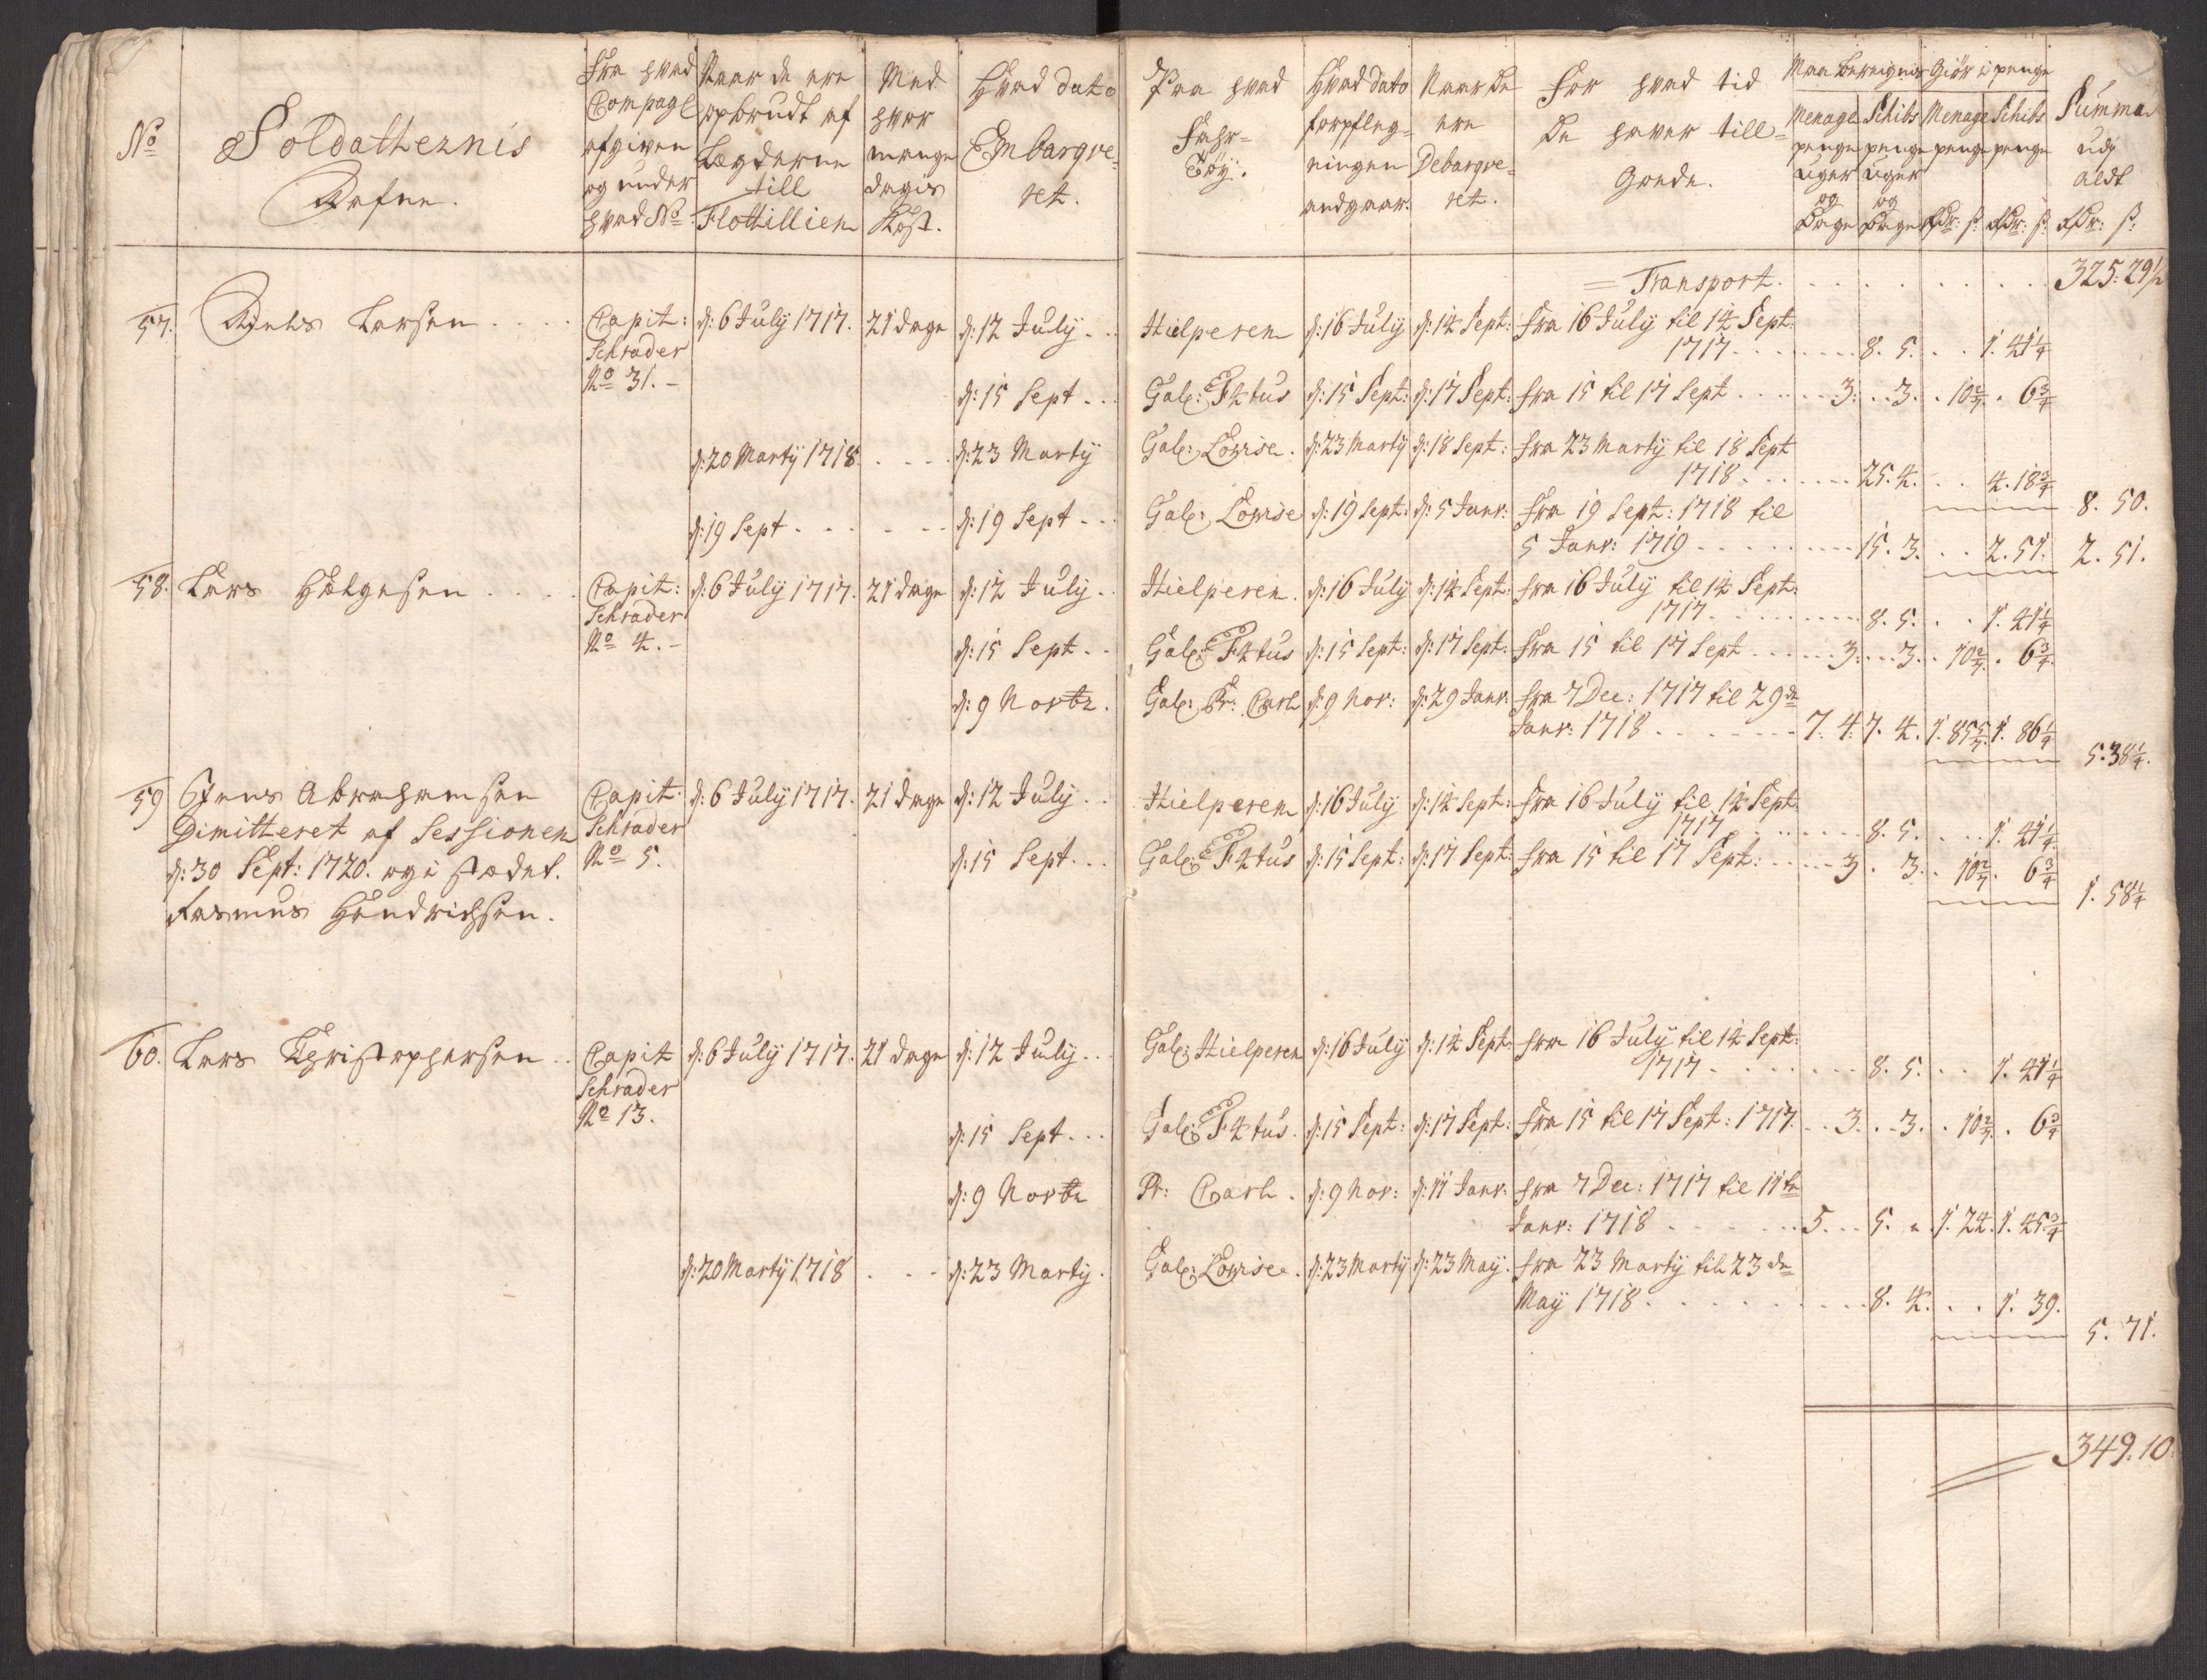 No
Soldathernis
Nafne.
Fra hvad
Compagl
afgiven
og under
hvad No
Naar de ere
opbrudt af
Lægderne
till
Flottillien
Med
hvor
mange
dagis
Kost.
Hvad dato
Embarqve-
ret.
Paa hvad
Fahr-
Töÿ.
Hvad dato
forpfleg-
ningen
andgaar.
Naar De
ere
Debarqve-
ret.
For hvad tid
De haver till-
Gode.
Maa bereignis
Giör i penge
Menage
penge
Uger
og
Dage
Schibs
penge
Uger
og
Dage
Menage
penge
Rdr: ß:
Schibs
penge
Rdr: ß:
Summa
udj
aldt
Rdr: ß:
Transport. 325. 29 1/2
57. Niels Larsen Capit: d: 6 July 1717. 21 dage d: 12 July Hielperen d: 16 July d: 14 Sept: fra 16 July til 14 Sept:
Schrader 1717 8. 5. 1. 41 1/4
No 31.
d: 15 Sept Gal: Fktus d: 15 Sept: d: 17 Sept: fra 15 til 17 Sept 3. 3. 10 2/7. 6 3/4
d: 20 Martÿ 1718 d: 23 Martÿ Gal: Lovise. d: 23 Martÿ d: 18 Sept: fra 23 Martÿ til 18 Sept
1718 25. 4. 4. 18 3/4
8. 50.
d: 19 Sept d: 19 Sept Gal: Lovise d: 19 Sept: d: 5 Janr: fra 19 Sept: 1718 til
5 Janr: 1719 15. 3. 2. 51. 2. 51.
58. Lars Helgesen Capit: d: 6 July 1717. 21 dage d: 12 July Hielperen. d: 16 July d: 14 Sept: fra 16 July til 14 Sept:
Schrader 1717 8. 5. 1. 41 1/4
No 4.
d: 15 Sept Gal: Fktus d: 15 Sept: d: 17 Sept: fra 15 til 17 Sept 3. 3. 10 2/7. 6 3/4.
d: 9 Novbr. Gal: Pr: Carl d: 9 Nov: d: 29 Janr: fra 7 Dec: 1717 til 29de
Janr: 1718 7. 4. 7. 4. 1. 85 5/7. 1. 86 1/4
5. 38 1/4.
59 Jens Abrahamsen Capit: d: 6 July 1717. 21 dage d: 12 July Hielperen d: 16 July d: 14 Sept: fra 16 July til 14 Sept:
Dimitteret af Sessionen Schrader 1717 8. 5. 1. 41 1/4
d: 30 Sept: 1720. og i stædet. No 5. d: 15 Sept Gal: Fktus d: 15 Sept: d: 17 Sept: fra 15 til 17 Sept: 3. 3. 10 2/7. 6 3/4
Rasmus Hendrichsen. 1. 58 1/4
60. Lars Christophersen Capit d: 6 July 1717. 21 dage d: 12 July Gal: Hielperen d: 16 July d: 14 Sept: fra 16 July til 14 Sept:
Schrader 1717 8. 5. 1. 41 1/4
No 13.
d: 15 Sept Gal: Fktus. d: 15 Sept: d: 17 Sept: fra 15 til 17 Sept: 1717. 3. 3. 10 2/7. 6 3/4
d: 9 Novbr Pr: Carl. d: 9 Nov: d: 11 Janr: fra 7 Dec: 1717 til 11te
Janr: 1718 5. 5. 1. 24. 1. 45 3/4
d: 20 Martÿ 1718 d: 23 Martÿ. Gal: Lovise. d: 23 Martÿ d: 23 May. fra 23 Martÿ til 23de
Maÿ 1718 8. 4. 1. 39.
5. 71.
349. 10.